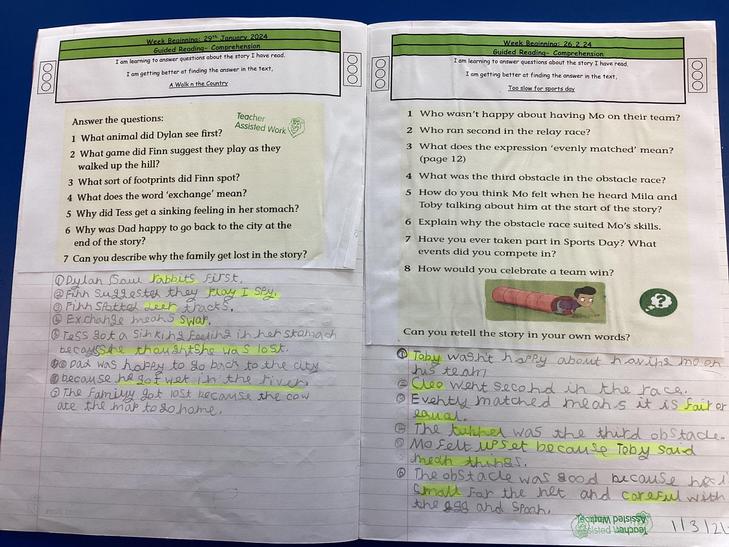 Week Beginning: 29th January 2024
Guided Reading- Comprehension
I am learning to answer questions about the story I have read.
I am getting better at finding the answer in the text,
A Walk n the Country
Answer the questions:
Teacher
Assisted Work
1 What animal did Dylan see first?
2 What game did Finn suggest they play as they
walked up the hill?
3 What sort of footprints did Finn spot?
4 What does the word 'exchange' mean?
5 Why did Tess get a sinking feeling in her stomach?
6 Why was Dad happy to go back to the city at the
end of the story?
7 Can you describe why the family get lost in the story?
① Dylan Saw rabbits first.
② Finn suggested they play I spy.
③ Finn spotted deer tracks.
④ Exchange means swap.
⑤ Tess got a sinking feeling in her stomach
because she thought she was lost.
⑥ Dad was happy to go back to the city
because he got wet in the river.
⑦ The family got lost because the cow
ate the map to go home.
Week Beginning: 26.2.24
Guided Reading- Comprehension
I am learning to answer questions about the story I have read.
I am getting better at finding the answer in the text,
Too slow for sports day
1 Who wasn't happy about having Mo on their team?
2 Who ran second in the relay race?
3 What does the expression 'evenly matched' mean?
(page 12)
4 What was the third obstacle in the obstacle race?
5 How do you think Mo felt when he heard Mila and
Toby talking about him at the start of the story?
6 Explain why the obstacle race suited Mo's skills.
7 Have you ever taken part in Sports Day? What
events did you compete in?
8 How would you celebrate a team win?
?
Can you retell the story in your own words?
① Toby wasn't happy about having mo on
his team
② Cleo went second in the race.
③ Evenly matched means it is fair or
equal.
④ The tunnel was the third obstacle.
⑤ Mo felt upset because Toby said
mean things.
⑥ The obstacle was good because he
small for the net and careful with
the egg and spoon.
Teacher
Assisted Work
1/3/2